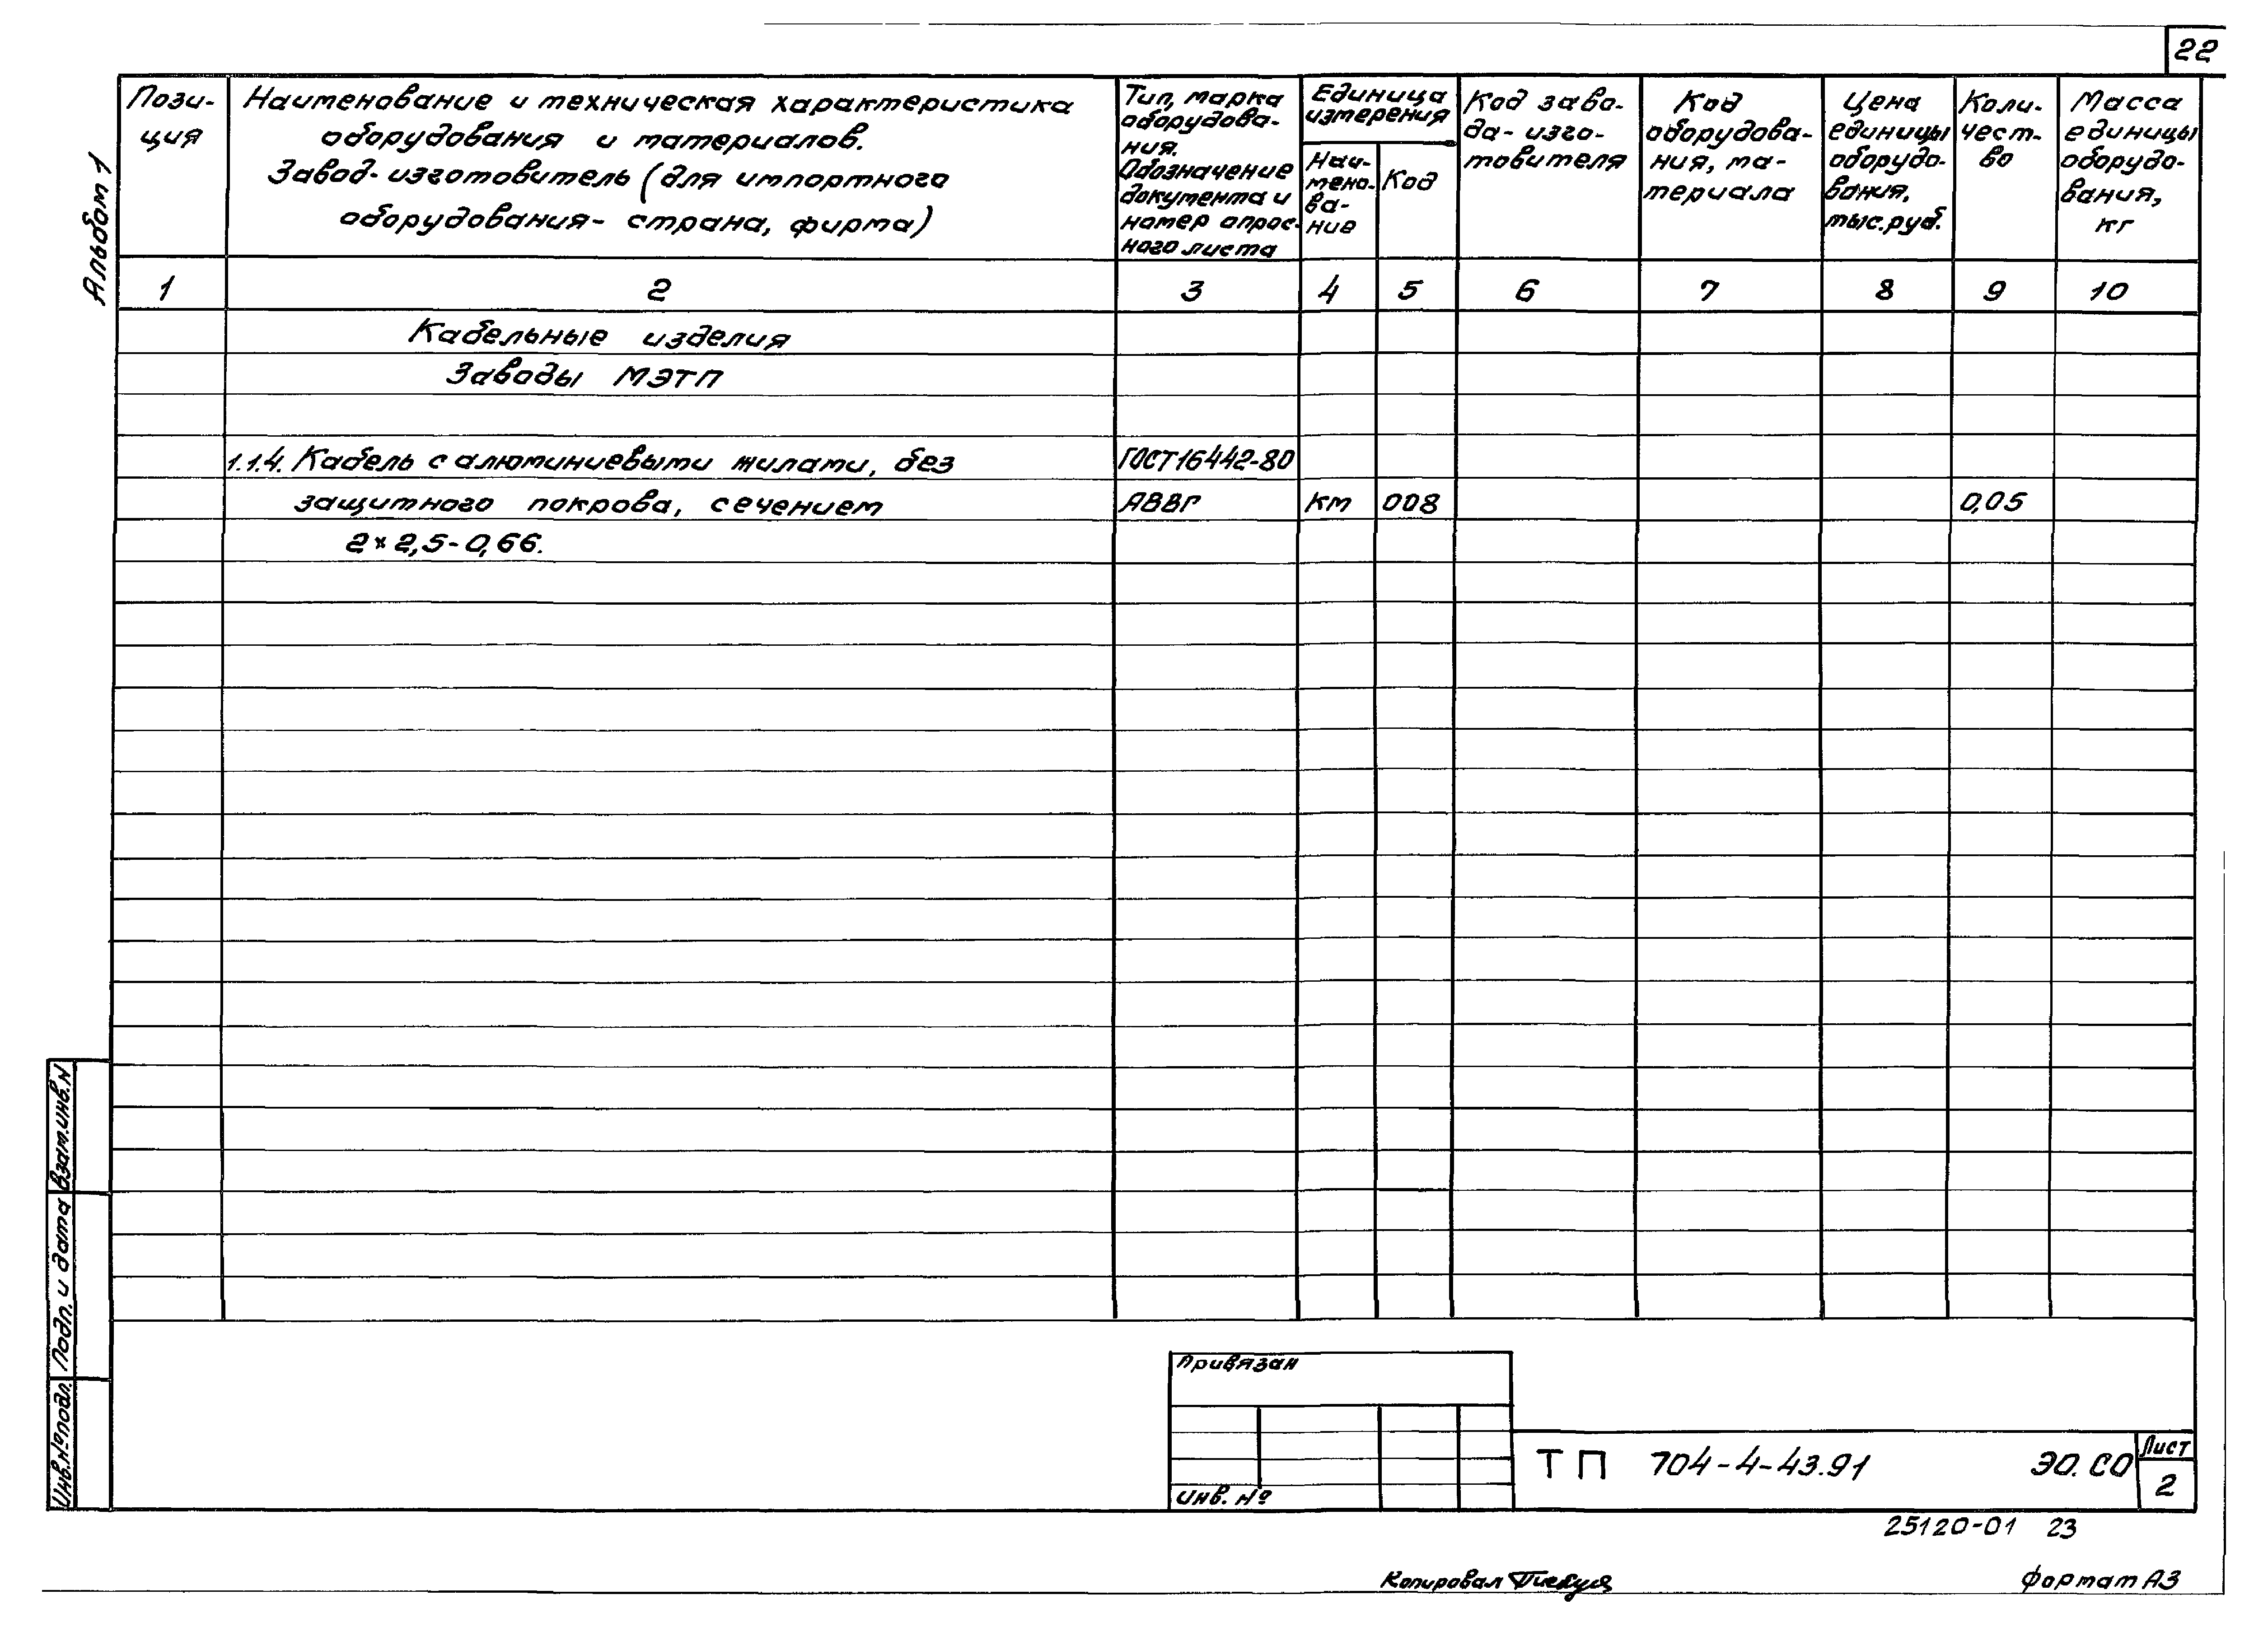 22
Альбом 1
Пози-
ция
Наименование и техническая характеристика
оборудования и материалов.
Завод-изготовитель (для импортного
оборудования- страна, фирма)
Тип, марка
оборудова-
ния.
Обозначение
документа и
номер опрос-
ного листа
Единица
измерения
Наи-
мено-
ва-
ние
Код
Код заво-
да-изго-
товителя
Код
оборудова-
ния, ма-
териала
Цена
единицы
оборудо-
вания,
тыс.руб.
Коли-
чест-
во
Масса
единицы
оборудо-
вания,
кг
1 2 3 4 5 6 7 8 9 10
Кабельные изделия
Заводы МЭТП
1.1.4. Кабель с алюминиевыми жилами, без ГОСТ16442-80
защитного покрова, сечением АВВГ км 008 0,05
2×2,5-0,66.
Взам.инв.N
Подп. и дата
Инв.№подл.
Привязан
Инв. №
ТП 704-4-43.91 ЭО.СО
Лист
2
25120-01 23
Копировал
формат А3